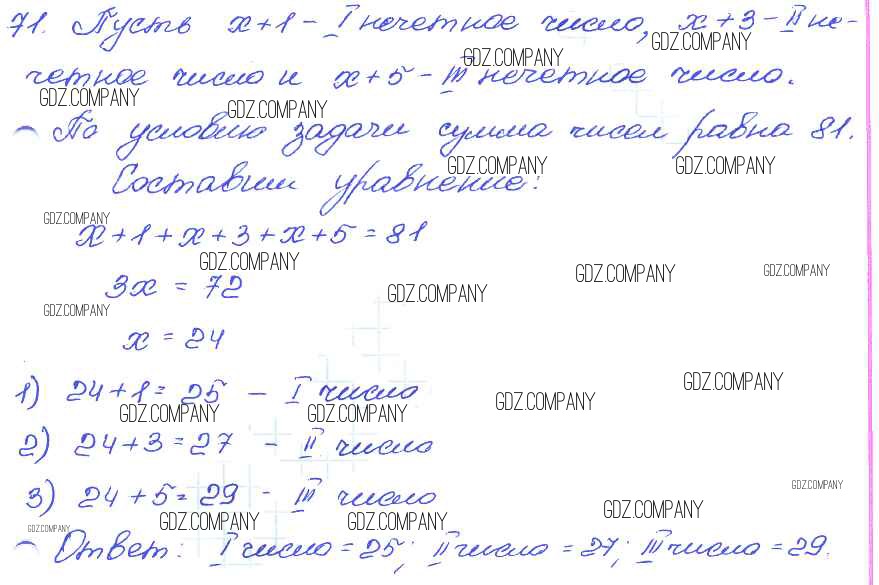 71. Пусть x+1 - I нечетное число, x+3 - II не-
GDZ.COMPANY
GDZ.COMPANY
четное число и x+5 - III нечетное число.
GDZ.COMPANY
GDZ.COMPANY
По условию задачи сумма чисел равна 81.
GDZ.COMPANY GDZ.COMPANY
Составим уравнение:
GDZ.COMPANY
x+1+x+3+x+5=81
GDZ.COMPANY GDZ.COMPANY GDZ.COMPANY
3x = 72
GDZ.COMPANY
GDZ.COMPANY
x = 24
GDZ.COMPANY
1) 24+1= 25 - I число
GDZ.COMPANY
GDZ.COMPANY GDZ.COMPANY
2) 24+3=27 - II число
GDZ.COMPANY
3) 24+5=29 - III число
GDZ.COMPANY
GDZ.COMPANY GDZ.COMPANY
GDZ.COMPANY
Ответ: I число=25; II число=27; III число=29.